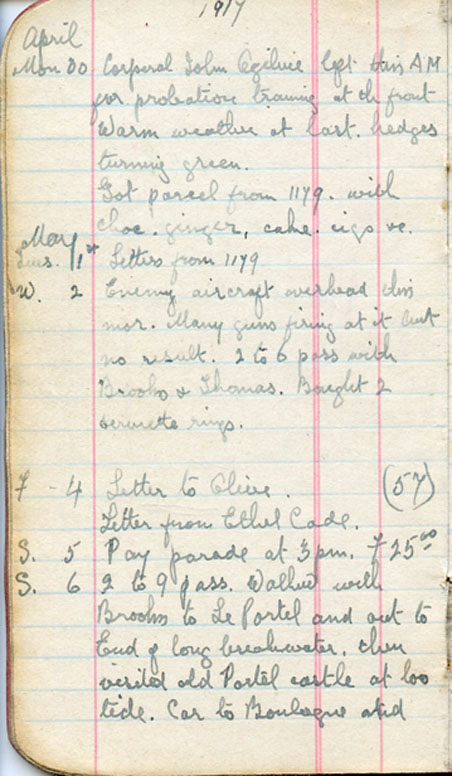 1917
April
Mon 30 Corporal John Ogilvie left this AM
for probation training at the front
Warm weather at last. hedges
turning green.
Got parcel from 1179. with
choc. ginger, cake. cigs &c.
May
Tues. 1st Letters from 1179
W. 2 Enemy aircraft overhead this
mor. Many guns firing at it but
no result. 2 to 6 pass with
Brooks & Thomas. Bought 2
serviette rings.
F - 4 Letter to Olive. (57)
Letter from Ethel Cade.
S. 5 Pay parade at 3 pm. F 25.00
S. 6 2 to 9 pass. Walked with
Brooks to Le Portel and out to
End of long breakwater, then
visited old Portel castle at loo
tide. Car to Boulogne and